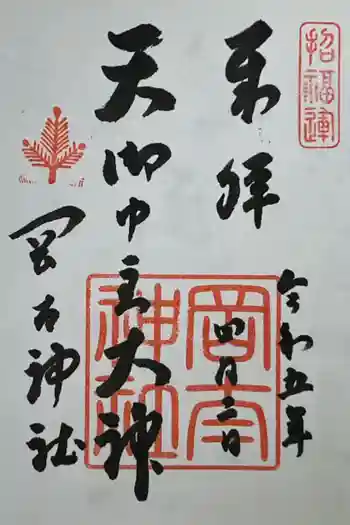 招福運
奉拝
令和五年
四月二日
天御中主大神
岡太神社
岡太
神社